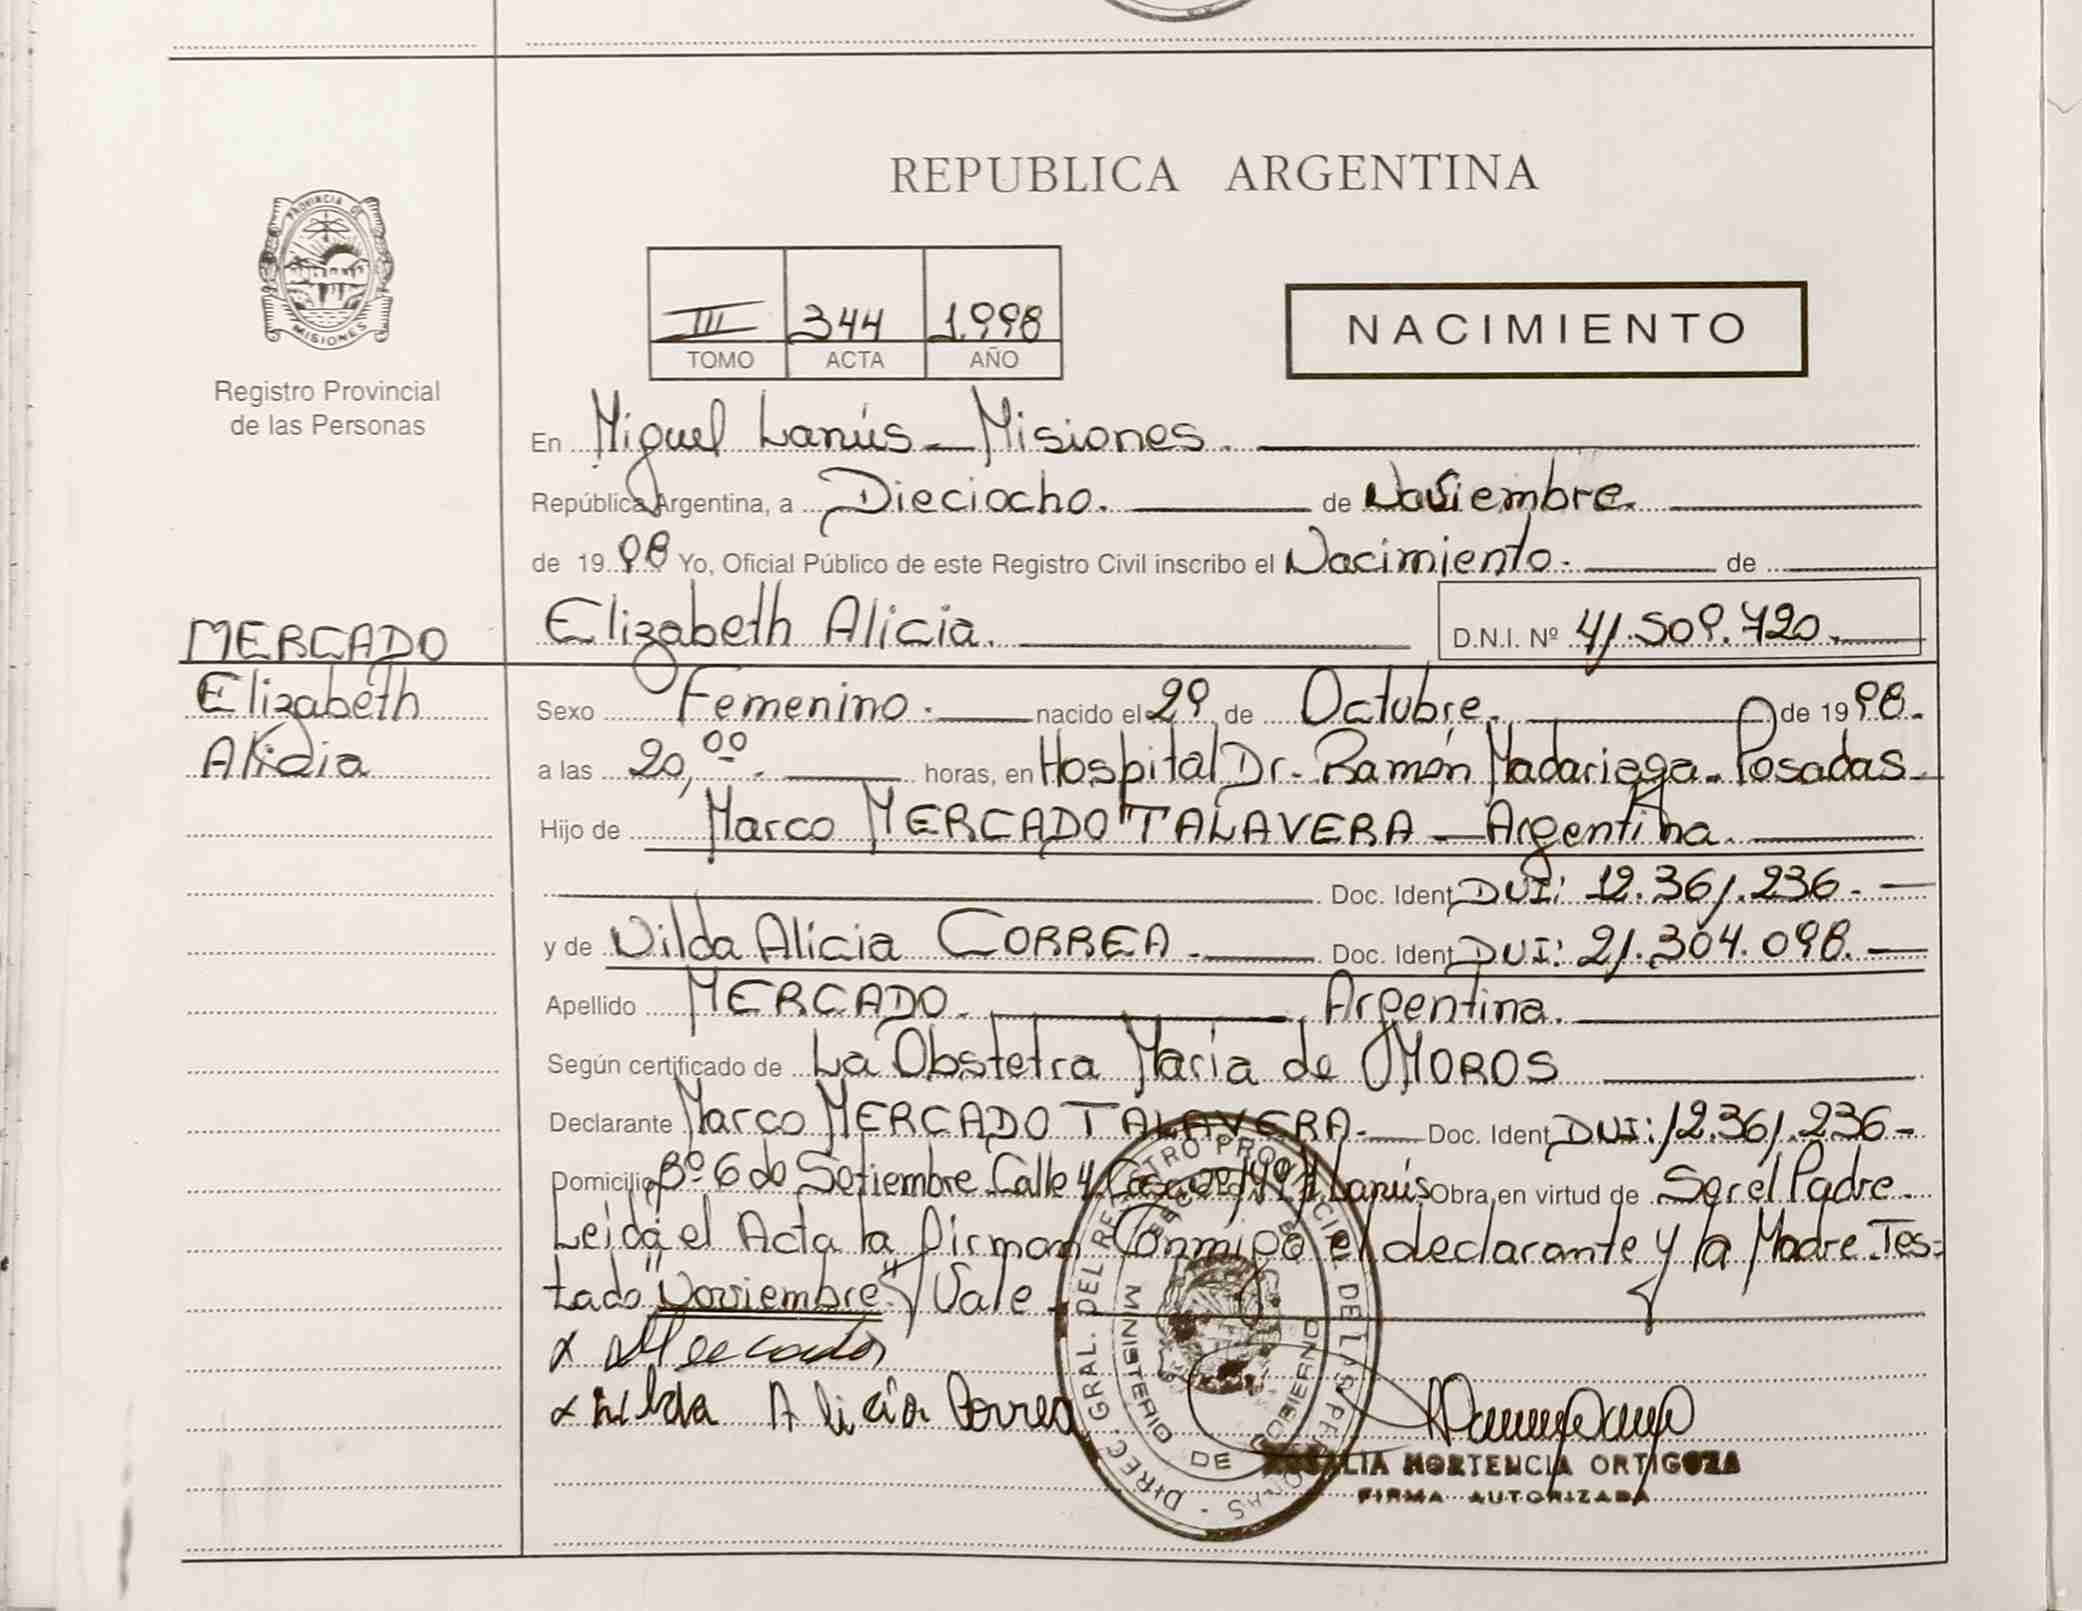 PROVINCIA DE
MISIONES
Registro Provincial
de las Personas
REPUBLICA ARGENTINA
III 344 1.998
TOMO ACTA AÑO
NACIMIENTO
En Miguel Lanús - Misiones.
República Argentina, a Dieciocho. de Noviembre.
de 19 98 Yo, Oficial Público de este Registro Civil inscribo el Nacimiento. de
MERCADO
Elizabeth
Alicia
Elizabeth Alicia. D.N.I. Nº 41.509.720.
Sexo Femenino. nacido el 29 de Octubre. de 19 98.
a las 20,00. horas, en Hospital Dr. Ramón Madariaga - Posadas -
Hijo de Marco MERCADO TALAVERA - Argentina.
Doc. Ident. DNI: 12.361.236.
y de Nilda Alicia CORREA. Doc. Ident. DNI: 21.304.098.
Apellido MERCADO. Argentina.
Según certificado de La Obstetra Maria de MOROS
Declarante Marco MERCADO TALAVERA. Doc. Ident. DNI: 12.361.236 -
Domicilio Bº 6 de Setiembre Calle 4 Casa Lanús Obra en virtud de Ser el Padre.
Leida el Acta la firman Conmigo el declarante y la Madre. Tes-
tado "Noviembre" Vale
x Mercado
x nilda Alicia Correa
DIREC. GRAL. DEL REGISTRO PROVINCIAL DE LAS PERSONAS -
MINISTERIO DE GOBIERNO
HORTENCIA ORTIGOZA
FIRMA AUTORIZADA